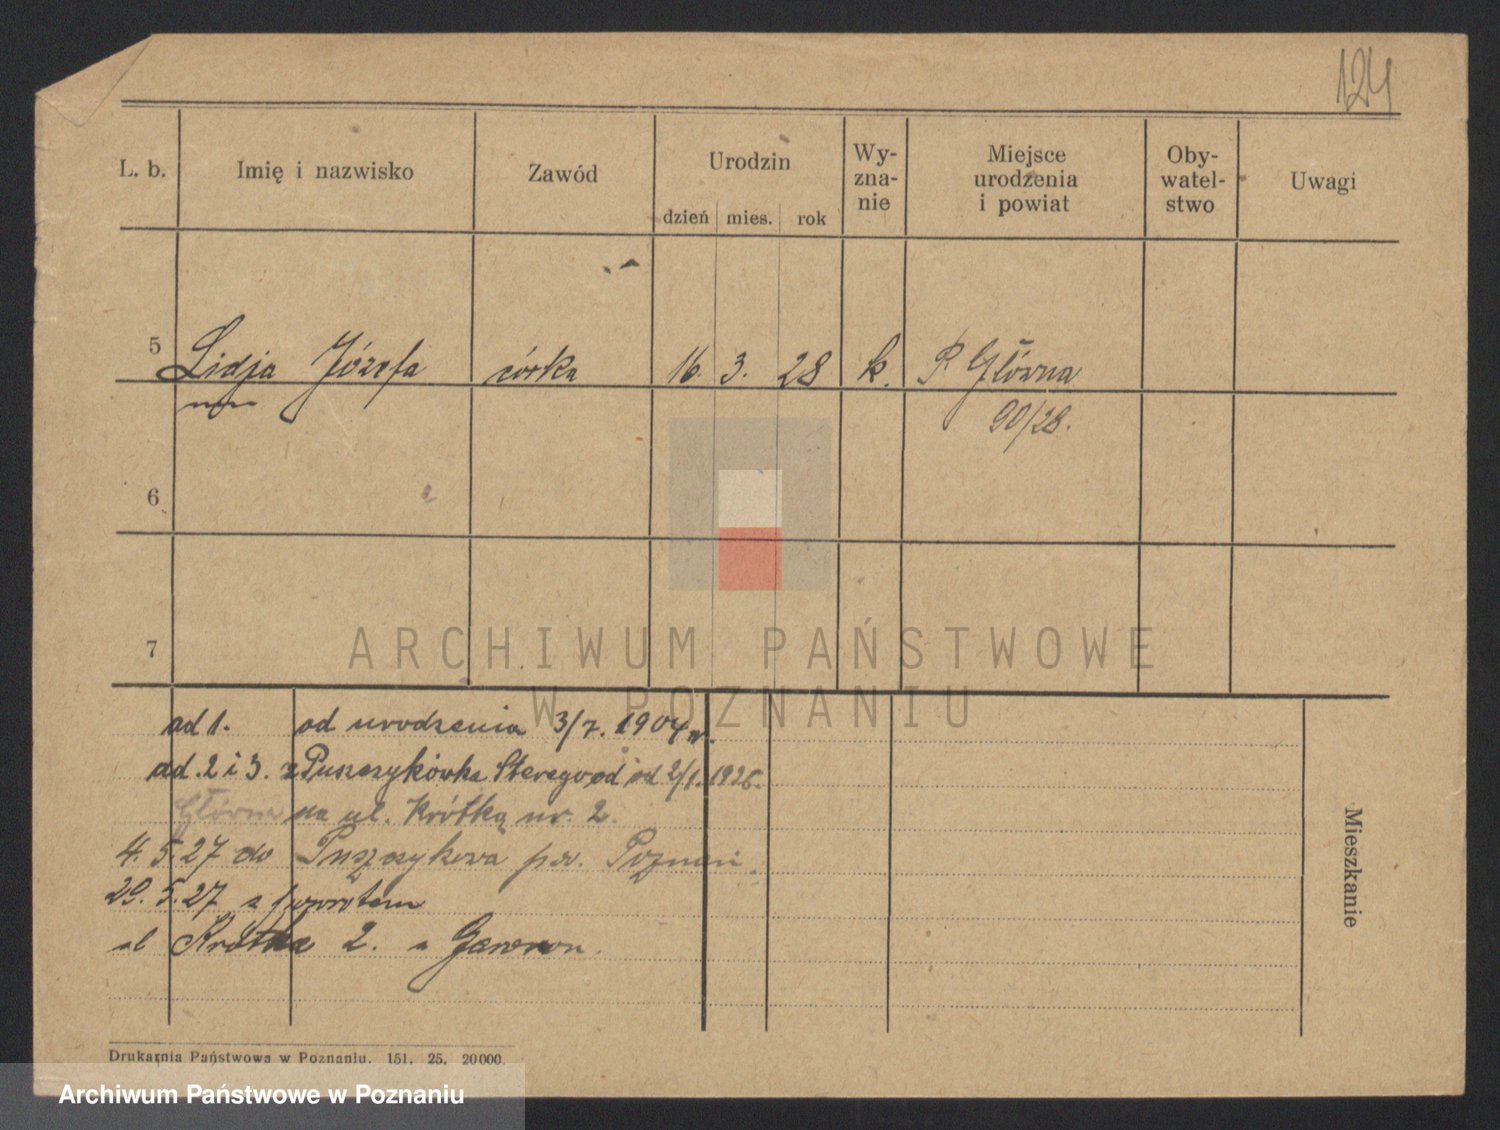 124
L. b. Imię i nazwisko Zawód Urodzin Wy-zna-nie Miejsce urodzenia i powiat Oby-watel-stwo Uwagi
dzień mies. rok
5 Lidja Józefa córka 16. 3. 28 k. P. Główna
90/28.
6
7
ARCHIWUM PAŃSTWOWE
W POZNANIU
ad 1. od urodzenia 3/7. 1904 r.
ad. 2 i 3. z Puszczykówka Starego od 2/1. 1926.
Główna na ul. Krótką nr. 2.
4. 5. 27 do Puszczykowa pow. Poznań
29. 5. 27. z powrotem
ul Krótka 2. u Gawron.
Mieszkanie
Drukarnia Państwowa w Poznaniu. 151. 25. 20000.
Archiwum Państwowe w Poznaniu